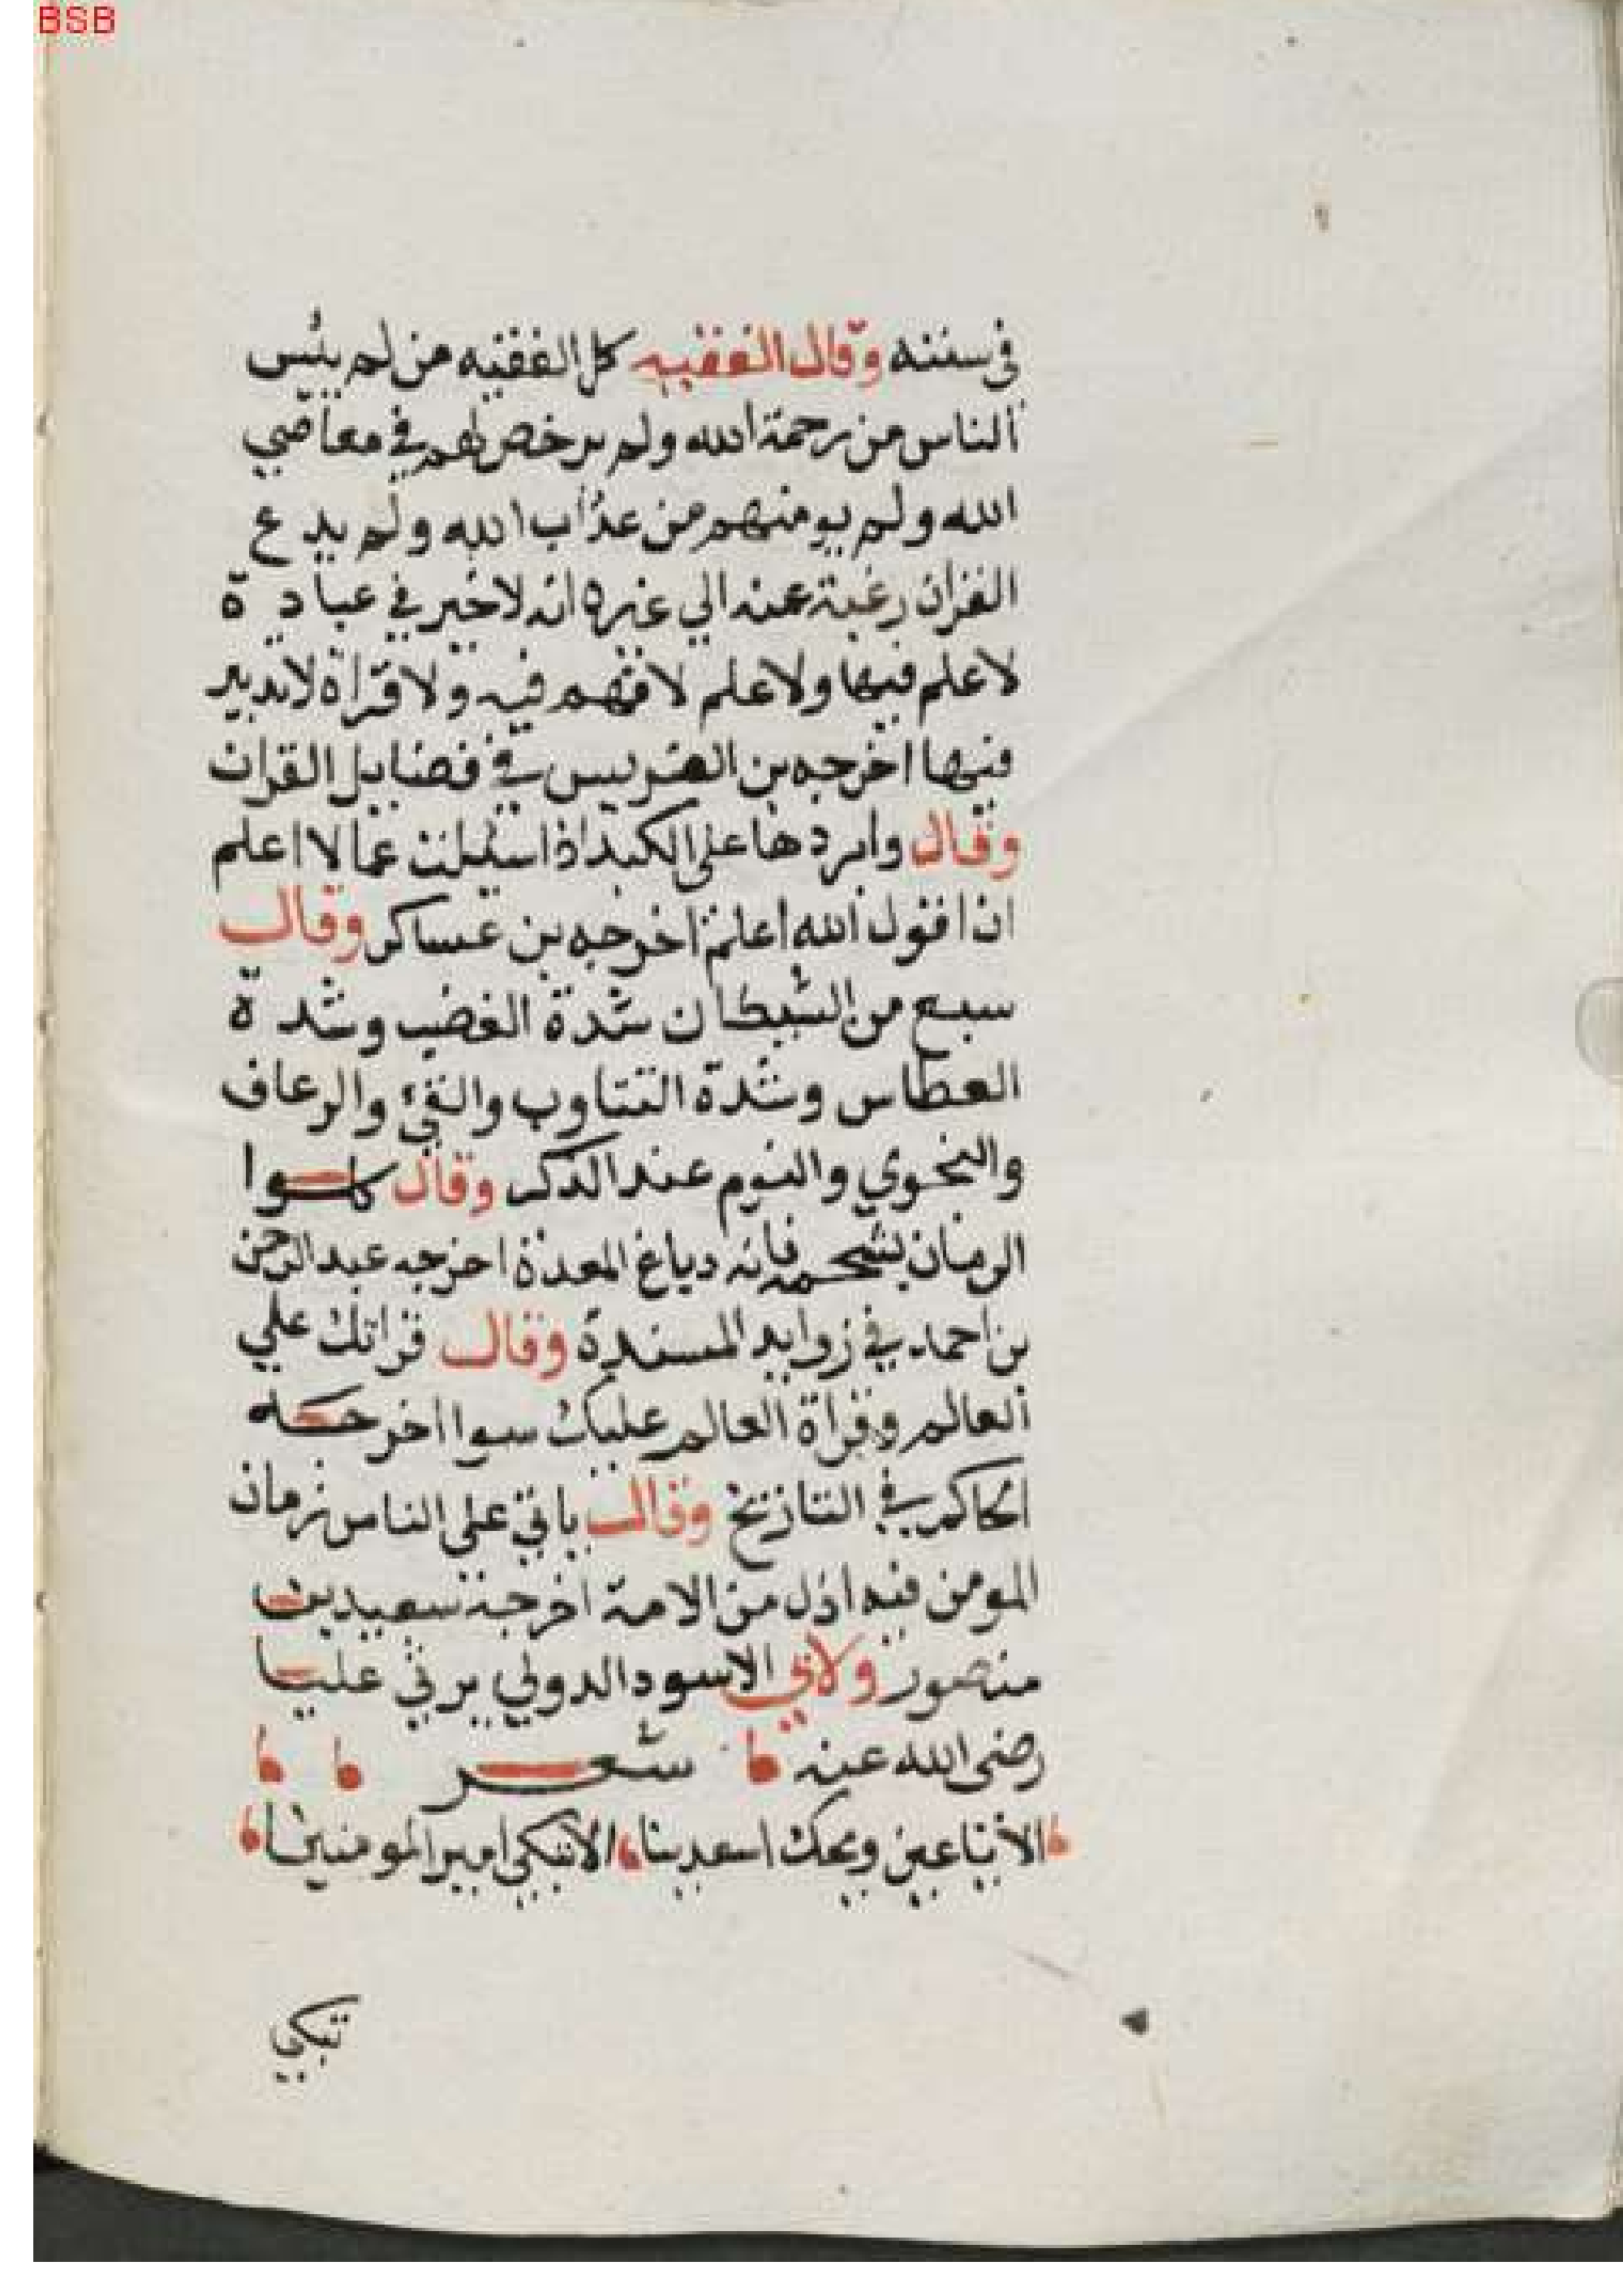 BSB
في سننه وقال الفقيه كل الفقيه من لم ييس
الناس من رحمة الله ولم يرخص لهم في معاصي
الله ولم يومنهم من عذاب الله ولم يدع
القران رغبة عنه الي غيره انه لا خير في عبادة
لا علم فيها ولا علم لا فهم فيه ولا قراة لا تدبر
فيها اخرجه بن الضريس في فضايل القران
وقال وابردها على الكبد اذا سئلت عما لا اعلم
ان اقول الله اعلم اخرجه بن عساكر وقال
سبع من الشيطان شدة الغضب وشدة
العطاس وشدة التتاوب والقيء والرعاف
والنجوي والنوم عند الذكر وقال كلوا
الرمان بشحمه فانه دباغ المعدة اخرجه عبد الرحمن
بن احمد في زوايد المسندة وقال قراتك علي
العالم وقراة العالم عليك سوا اخرجه
الحاكم في التاريخ وقال ياتي على الناس زمان
المومن فيه اذل من الامة اخرجه سعيد بن
منصور ولابي الاسود الدولي يرثي عليا
رضى الله عنه شعر
الا يا عين ويحك اسعدينا الا تبكي امير المومنينا
تبكي